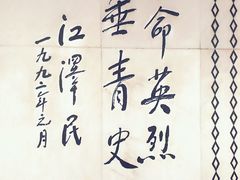 命英烈
垂青史
江泽民
一九九二年元月